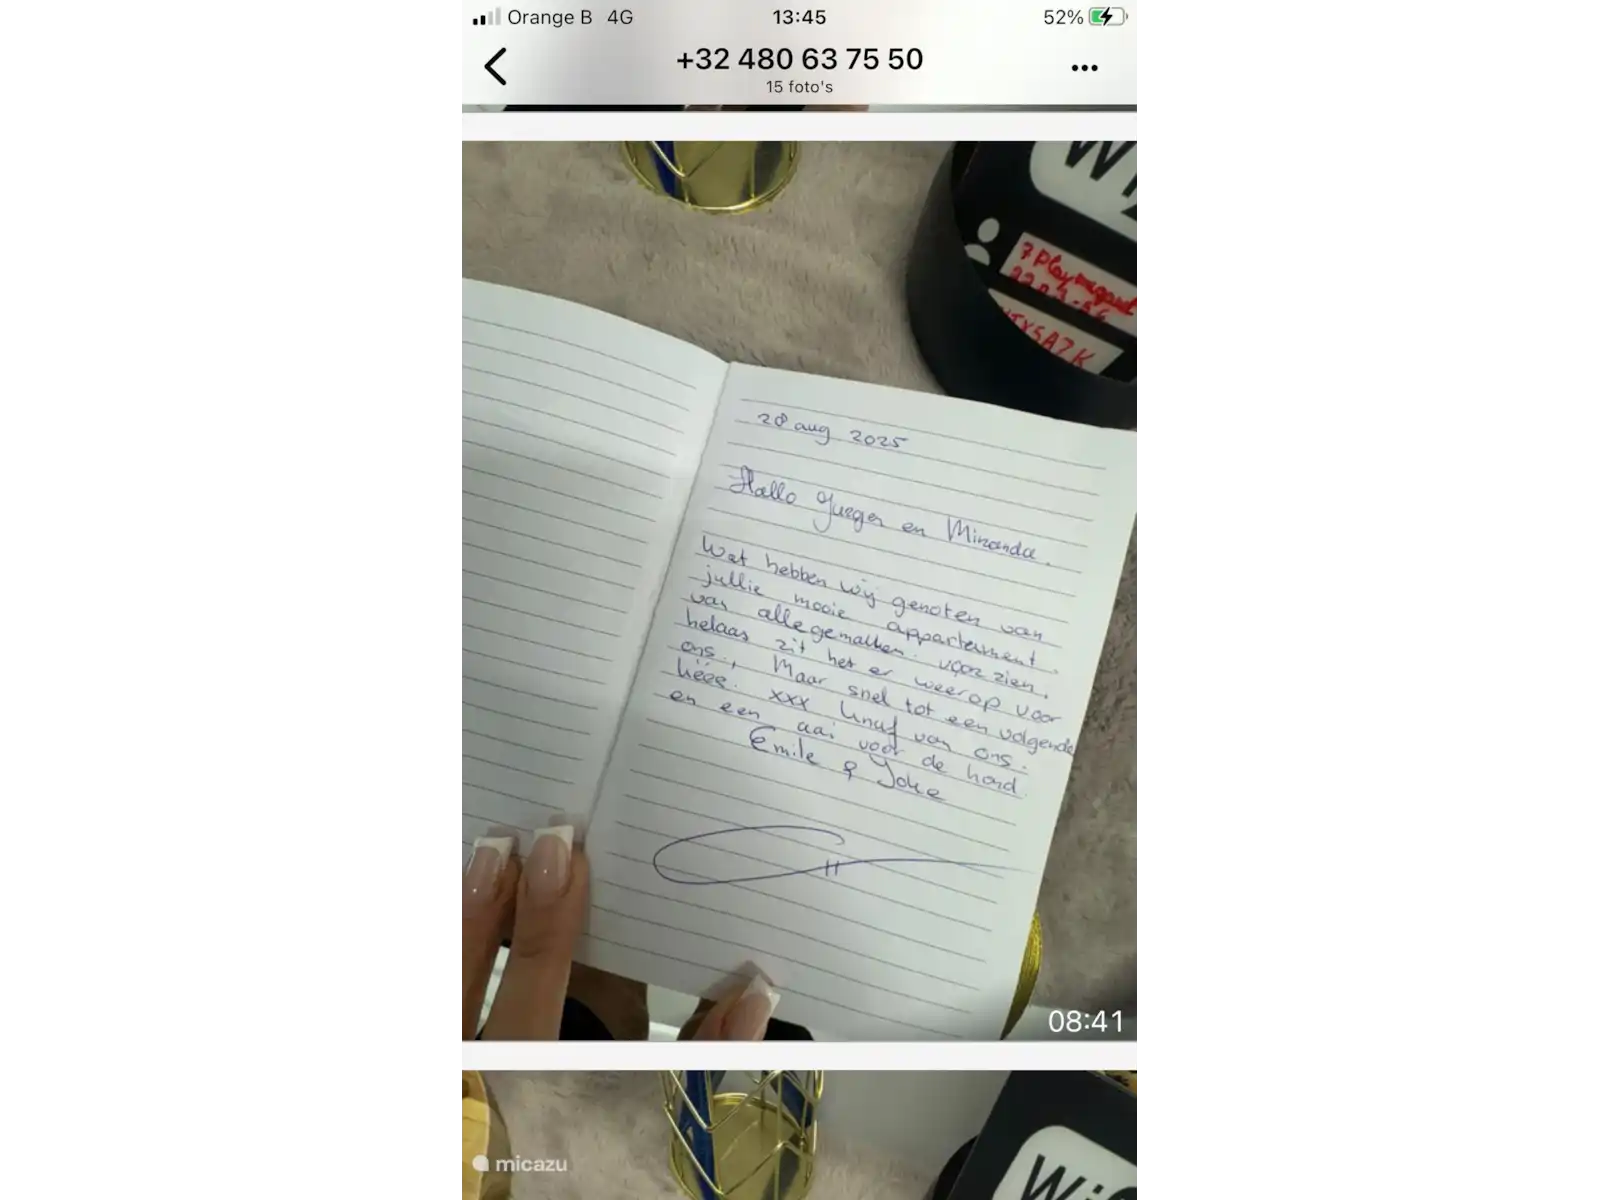 Orange B 4G 13:45 52%
+32 480 63 75 50
15 foto's
Wi
7Playmegard
28 aug 2025
Hallo Jurgen en Miranda.
Wat hebben wij genoten van
jullie mooie appartement.
van alle gemakken voorzien.
helaas zit het er weer op voor
ons., Maar snel tot een volgende
kéér. xxx knuf van ons.
en een aai voor de hond.
Emile & Joke
08:41
micazu
Wi